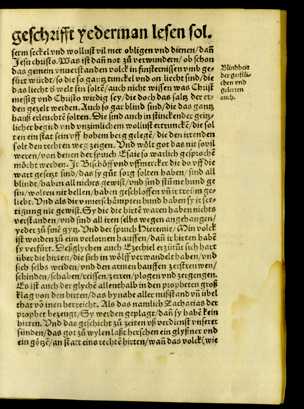 geschrifft yederman lesen sol.
term seckel vnd wollust vil mer obligen vnd dienen / dañ
Jesu christo. Was ist dañ not zů verwundern / ob schon
das gemein vnuerstanden volck in finsternissen vnd ge-
fürt würdt / so die so gantz tunckel vnd on liecht sind / die
das liecht d̕ welt sin solte / auch nicht wissen was Christ
messig vnd Christo widrig sey / die doch das saltz der er-
den gezelt werden. Auch so gar blind sind / die das gantz
hauß erleuchte solten. Die sind auch in stinckender geitz
lichet begird vnd vnzimlichem wollust ertrunckē / die sol-
ten ein stat sein vff hohem berg gelegē / die den irrenden
solt den rechten weg zeigen. Vnd wölt got das nit so vil
weren / von denen der spruch Esaie so warlich gesproche
möcht werden. Jr Bischöff vnd vffmercker die do vff die
wart gesetzt sind / das sy gůt sorg solten haben / sind all
blinde / haben all nichts gewißt / vnd sind stum̄e hund ge
sin / wolten nit bellen / haben geschloffen vñ ir treüm ge-
liebt. Vnd als die vmerschāmpten hund haben sy ir set-
tigung nie gewißt. Sy die die hirtē waren haben nichts
verstanden / vnd sind all iren selbs wegen angehangen /
yeder zů sine gytz. Vnd der spruch Hieremie, Min volck
ist worden zů ein verlornen hauffen / dañ ir hirten habē
sy verfürt. Deßglychen auch Ezechiel erzürnt sich hart
über die hirten / die sich in wölff verwandelt haben / vnd
sich selbs weiden / vnd den armen hauffen zerströwen /
schinden / schaben / reissen / zerren / plogen vnd zergengen.
Es ist auch der glychē allenthalb in den propheten groß
klag von den hirten / das bynahe aller mißstand vñ übel
thar võ inen herreicht. Als das namlich Zacharias der
prophet bezeugt / Sy werden geplagt / dañ sy habē kein
hirten. Vnd das geschicht zů zeiten vß verdienst vnserer
sünden / das got zů wylen laßt herschen ein glyßner vnd
ein götzē / an statt eins rechtē hirten / wañ das volck / wie
Blindheit
der geistli-
chen vnd
gelerten
auch.